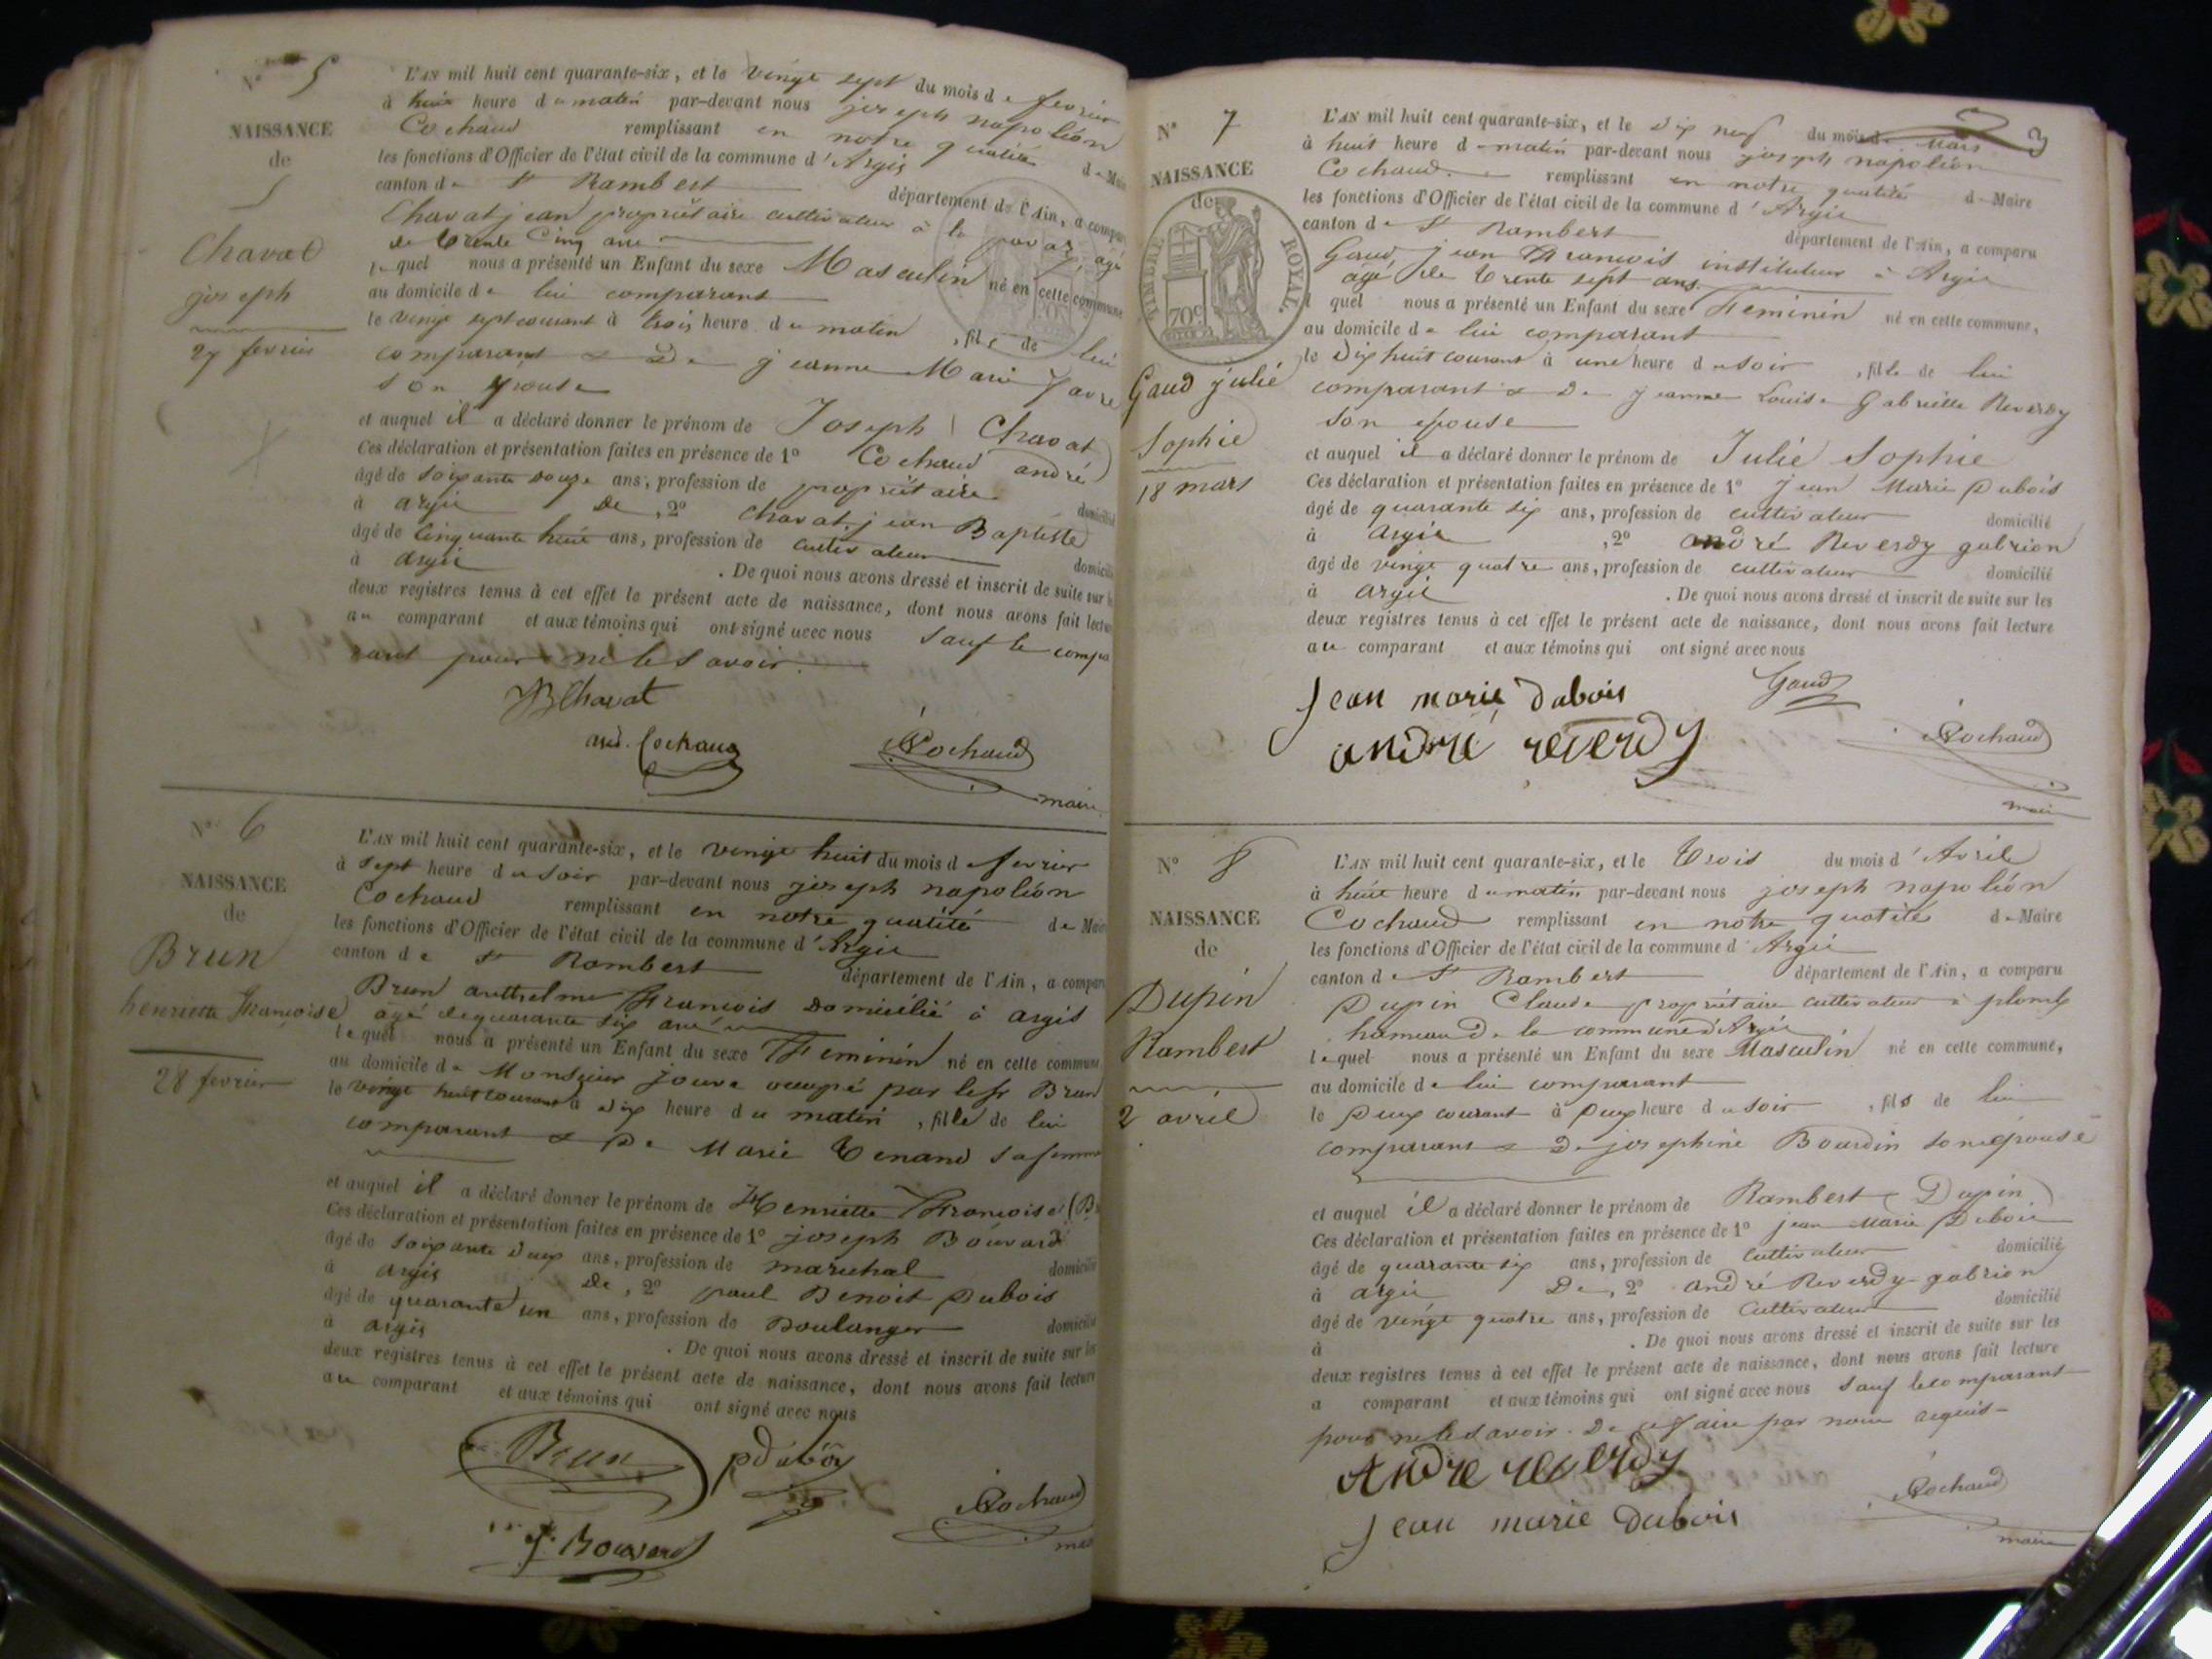 N° 5
NAISSANCE
de
Chavat
joseph
27 fevrier
L'AN mil huit cent quarante-six, et le vingt sept du mois de fevrier
à huit heure du matin par-devant nous joseph napoléon
Cochaud remplissant en notre qualité de Maire
les fonctions d'Officier de l'état civil de la commune d'Argis
canton de St Rambert département de l'Ain, a comparu
Chavat jean propriétaire cultivateur à la agé
de trente Cinq ans
lequel nous a présenté un Enfant du sexe Masculin né en cette commune
au domicile de lui comparant
le vingt sept courant à trois heure du matin , fils de lui
comparant & De jeanne Marie
son épouse
et auquel il a déclaré donner le prénom de Joseph Chavat
Ces déclaration et présentation faites en présence de 1° Cochaud andré
âgé de soixante douze ans, profession de propriétaire domicilié
à argis De , 2° chavat jean Baptiste
âgé de Cinquante huit ans, profession de cultivateur domicilié
à argis . De quoi nous avons dressé et inscrit de suite sur les
deux registres tenus à cet effet le présent acte de naissance, dont nous avons fait lecture
au comparant et aux témoins qui ont signé avec nous sauf le compa
rant pour ne le savoir
JB Chavat
and. Cochaud
Cochaud
maire
N° 6
NAISSANCE
de
Brun
henriette françoise
28 fevrier
L'AN mil huit cent quarante-six, et le vingt huit du mois de fevrier
à sept heure du soir par-devant nous joseph napoléon
Cochaud remplissant en notre qualité de Maire
les fonctions d'Officier de l'état civil de la commune d'Argis
canton de St Rambert département de l'Ain, a comparu
Brun anthelme François Domicilié à argis
agé de quarante six ans
lequel nous a présenté un Enfant du sexe Feminin né en cette commune
au domicile de Monsieur jouve occupé par le sr Brun
le vingt huit courant à dix heure du matin , fille de lui
comparant & De Marie Tenand sa femme
et auquel il a déclaré donner le prénom de Henriette Françoise (B
Ces déclaration et présentation faites en présence de 1° joseph Bouvard
âgé de soixante deux ans, profession de maréchal domicilié
à argis De , 2° paul Benoit Dubois
âgé de quarante un ans, profession de Boulanger domicilié
à argis . De quoi nous avons dressé et inscrit de suite sur les
deux registres tenus à cet effet le présent acte de naissance, dont nous avons fait lecture
au comparant et aux témoins qui ont signé avec nous
Brun
pDubois
J. Bouvard
Cochaud
N° 7
NAISSANCE
de
TIMBRE ROYAL.
70c
Gaud julie
Sophie
18 mars
L'AN mil huit cent quarante-six, et le Dix neuf du mois de Mars
à huit heure du matin par-devant nous joseph napoléon
Cochaud remplissant en notre qualité de Maire
les fonctions d'Officier de l'état civil de la commune d'Argis
canton de St Rambert département de l'Ain, a comparu
Gaud jean François instituteur à Argis
agé de trente sept ans
lequel nous a présenté un Enfant du sexe Feminin né en cette commune,
au domicile de lui comparant
le Dix huit courant à une heure du soir , fille de lui
comparant & De jeanne Louise Gabrielle Reverdy
son épouse
et auquel il a déclaré donner le prénom de Julie Sophie
Ces déclaration et présentation faites en présence de 1° jean Marie Dubois
âgé de quarante six ans, profession de cultivateur domicilié
à argis , 2° andré Reverdy gabrion
âgé de vingt quatre ans, profession de cultivateur domicilié
à argis . De quoi nous avons dressé et inscrit de suite sur les
deux registres tenus à cet effet le présent acte de naissance, dont nous avons fait lecture
au comparant et aux témoins qui ont signé avec nous
Jean marie Dubois
Gaud
andré reverdy
Cochaud
maire
N° 8
NAISSANCE
de
Dupin
Rambert
2 avril
L'AN mil huit cent quarante-six, et le trois du mois d'Avril
à huit heure du matin par-devant nous joseph napoléon
Cochaud remplissant en notre qualité de Maire
les fonctions d'Officier de l'état civil de la commune d'Argis
canton de St Rambert département de l'Ain, a comparu
Dupin Claude propriétaire cultivateur à plomb
hameau De la commune d'Argis
lequel nous a présenté un Enfant du sexe Masculin né en cette commune,
au domicile de lui comparant
le Deux courant à Deux heure du soir , fils de lui
comparant & De josephine Bourdin son épouse
et auquel il a déclaré donner le prénom de Rambert (Dupin)
Ces déclaration et présentation faites en présence de 1° jean Marie Dubois
âgé de quarante six ans, profession de Cultivateur domicilié
à argis De , 2° andré Reverdy gabrion
âgé de vingt quatre ans, profession de Cultivateur domicilié
à . De quoi nous avons dressé et inscrit de suite sur les
deux registres tenus à cet effet le présent acte de naissance, dont nous avons fait lecture
a comparant et aux témoins qui ont signé avec nous sauf le comparant
pour ne le savoir De ce faire par nous requis
André reverdy
Jean marie Dubois
Cochaud
maire